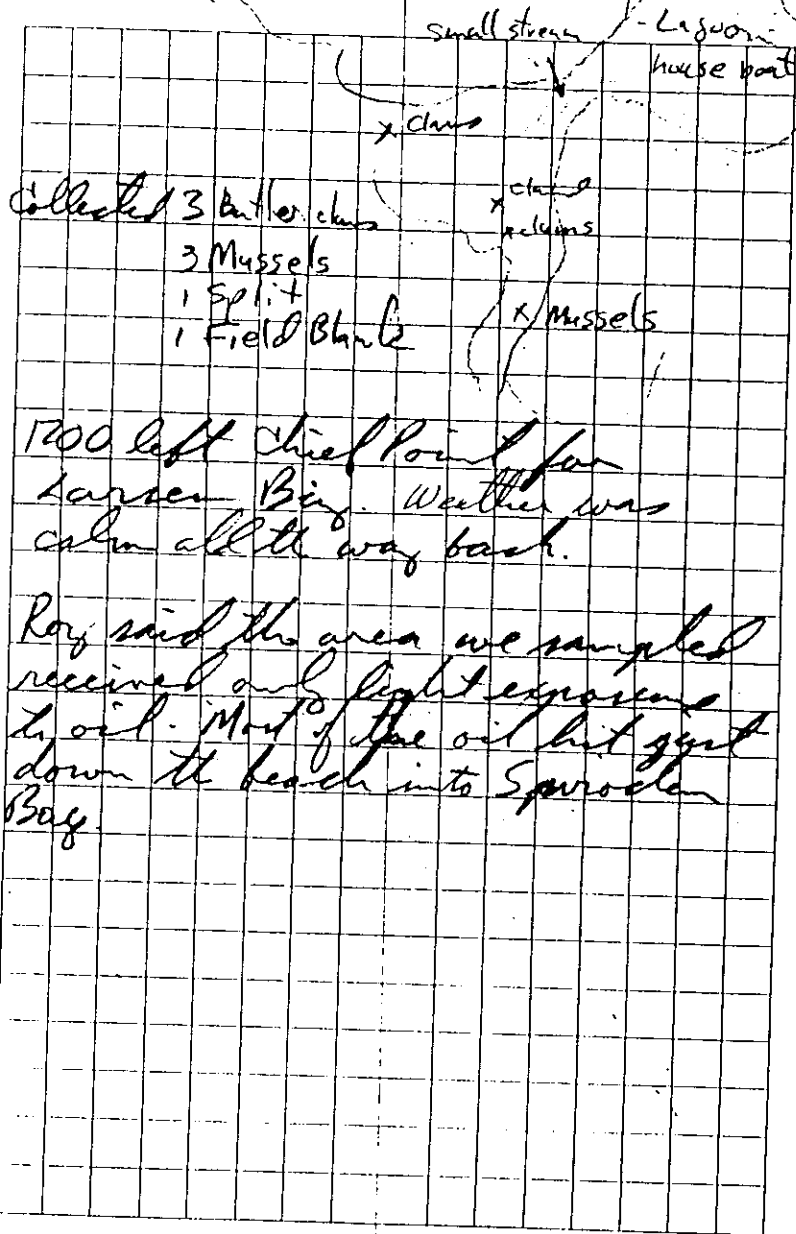 small stream
- Lagoon
house boat
x clams
Collected 3 Butler clams
x clams
x clams
3 Mussels
1 Split
1 Field Blank
x Mussels
1200 left Chief Point for
Larsen Bay. Weather was
calm all th way back.
Roy said the area we sampled
received only light exposure
to oil. Most of the oil hit just
down th beach into Spiroden
Bay.